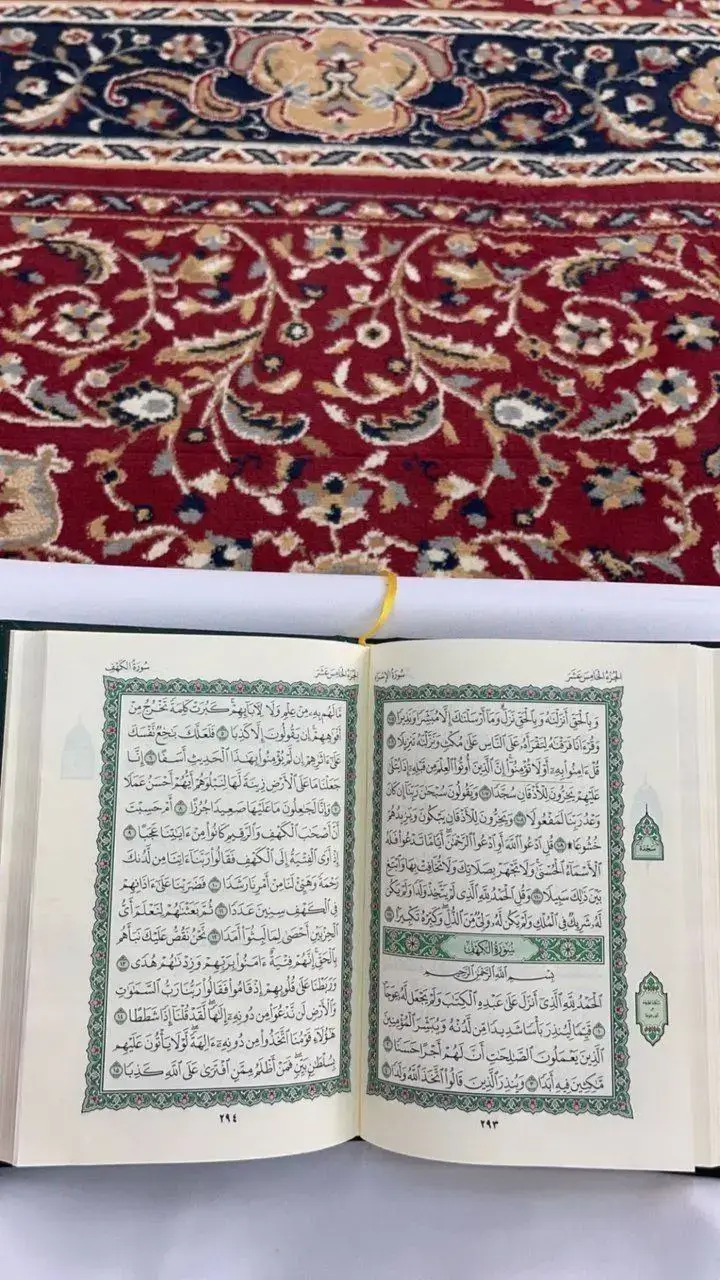 الجزء الخامس عشر
سورة الإسراء
وَبِالْحَقِّ أَنزَلْنَاهُ وَبِالْحَقِّ نَزَلَ ۗ وَمَا أَرْسَلْنَاكَ إِلَّا مُبَشِّرًا وَنَذِيرًا ١٠٥
وَقُرْآنًا فَرَقْنَاهُ لِتَقْرَأَهُ عَلَى النَّاسِ عَلَىٰ مُكْثٍ وَنَزَّلْنَاهُ تَنزِيلًا ١٠٦
قُلْ آمِنُوا بِهِ أَوْ لَا تُؤْمِنُوا ۚ إِنَّ الَّذِينَ أُوتُوا الْعِلْمَ مِن قَبْلِهِ إِذَا يُتْلَىٰ
عَلَيْهِمْ يَخِرُّونَ لِلْأَذْقَانِ سُجَّدًا ١٠٧ وَيَقُولُونَ سُبْحَانَ رَبِّنَا إِن كَانَ
وَعْدُ رَبِّنَا لَمَفْعُولًا ١٠٨ وَيَخِرُّونَ لِلْأَذْقَانِ يَبْكُونَ وَيَزِيدُهُمْ
خُشُوعًا ۩ ١٠٩ قُلِ ادْعُوا اللَّهَ أَوِ ادْعُوا الرَّحْمَٰنَ ۖ أَيًّا مَّا تَدْعُوا فَلَهُ
الْأَسْمَاءُ الْحُسْنَىٰ ۚ وَلَا تَجْهَرْ بِصَلَاتِكَ وَلَا تُخَافِتْ بِهَا وَابْتَغِ
بَيْنَ ذَٰلِكَ سَبِيلًا ١١٠ وَقُلِ الْحَمْدُ لِلَّهِ الَّذِي لَمْ يَتَّخِذْ وَلَدًا وَلَمْ يَكُن
لَّهُ شَرِيكٌ فِي الْمُلْكِ وَلَمْ يَكُن لَّهُ وَلِيٌّ مِّنَ الذُّلِّ ۖ وَكَبِّرْهُ تَكْبِيرًا ١١١
سُورَةُ الْكَهْفِ
بِسْمِ اللَّهِ الرَّحْمَٰنِ الرَّحِيمِ
الْحَمْدُ لِلَّهِ الَّذِي أَنزَلَ عَلَىٰ عَبْدِهِ الْكِتَابَ وَلَمْ يَجْعَل لَّهُ عِوَجًا ۜ
١ قَيِّمًا لِّيُنذِرَ بَأْسًا شَدِيدًا مِّن لَّدُنْهُ وَيُبَشِّرَ الْمُؤْمِنِينَ
الَّذِينَ يَعْمَلُونَ الصَّالِحَاتِ أَنَّ لَهُمْ أَجْرًا حَسَنًا ٢
مَّاكِثِينَ فِيهِ أَبَدًا ٣ وَيُنذِرَ الَّذِينَ قَالُوا اتَّخَذَ اللَّهُ وَلَدًا ٤
سجدة
٢٩٣
الجزء الخامس عشر
سورة الكهف
مَّا لَهُم بِهِ مِنْ عِلْمٍ وَلَا لِآبَائِهِمْ ۚ كَبُرَتْ كَلِمَةً تَخْرُجُ مِنْ
أَفْوَاهِهِمْ ۚ إِن يَقُولُونَ إِلَّا كَذِبًا ٥ فَلَعَلَّكَ بَاخِعٌ نَّفْسَكَ
عَلَىٰ آثَارِهِمْ إِن لَّمْ يُؤْمِنُوا بِهَٰذَا الْحَدِيثِ أَسَفًا ٦ إِنَّا
جَعَلْنَا مَا عَلَى الْأَرْضِ زِينَةً لَّهَا لِنَبْلُوَهُمْ أَيُّهُمْ أَحْسَنُ عَمَلًا
٧ وَإِنَّا لَجَاعِلُونَ مَا عَلَيْهَا صَعِيدًا جُرُزًا ٨ أَمْ حَسِبْتَ
أَنَّ أَصْحَابَ الْكَهْفِ وَالرَّقِيمِ كَانُوا مِنْ آيَاتِنَا عَجَبًا ٩
إِذْ أَوَى الْفِتْيَةُ إِلَى الْكَهْفِ فَقَالُوا رَبَّنَا آتِنَا مِن لَّدُنكَ
رَحْمَةً وَهَيِّئْ لَنَا مِنْ أَمْرِنَا رَشَدًا ١٠ فَضَرَبْنَا عَلَىٰ آذَانِهِمْ
فِي الْكَهْفِ سِنِينَ عَدَدًا ١١ ثُمَّ بَعَثْنَاهُمْ لِنَعْلَمَ أَيُّ
الْحِزْبَيْنِ أَحْصَىٰ لِمَا لَبِثُوا أَمَدًا ١٢ نَّحْنُ نَقُصُّ عَلَيْكَ نَبَأَهُم
بِالْحَقِّ ۚ إِنَّهُمْ فِتْيَةٌ آمَنُوا بِرَبِّهِمْ وَزِدْنَاهُمْ هُدًى ١٣
وَرَبَطْنَا عَلَىٰ قُلُوبِهِمْ إِذْ قَامُوا فَقَالُوا رَبُّنَا رَبُّ السَّمَاوَاتِ
وَالْأَرْضِ لَن نَّدْعُوَ مِن دُونِهِ إِلَٰهًا ۖ لَّقَدْ قُلْنَا إِذًا شَطَطًا ١٤
هَٰؤُلَاءِ قَوْمُنَا اتَّخَذُوا مِن دُونِهِ آلِهَةً ۖ لَّوْلَا يَأْتُونَ عَلَيْهِم
بِسُلْطَانٍ بَيِّنٍ ۖ فَمَنْ أَظْلَمُ مِمَّنِ افْتَرَىٰ عَلَى اللَّهِ كَذِبًا ١٥
٢٩٤